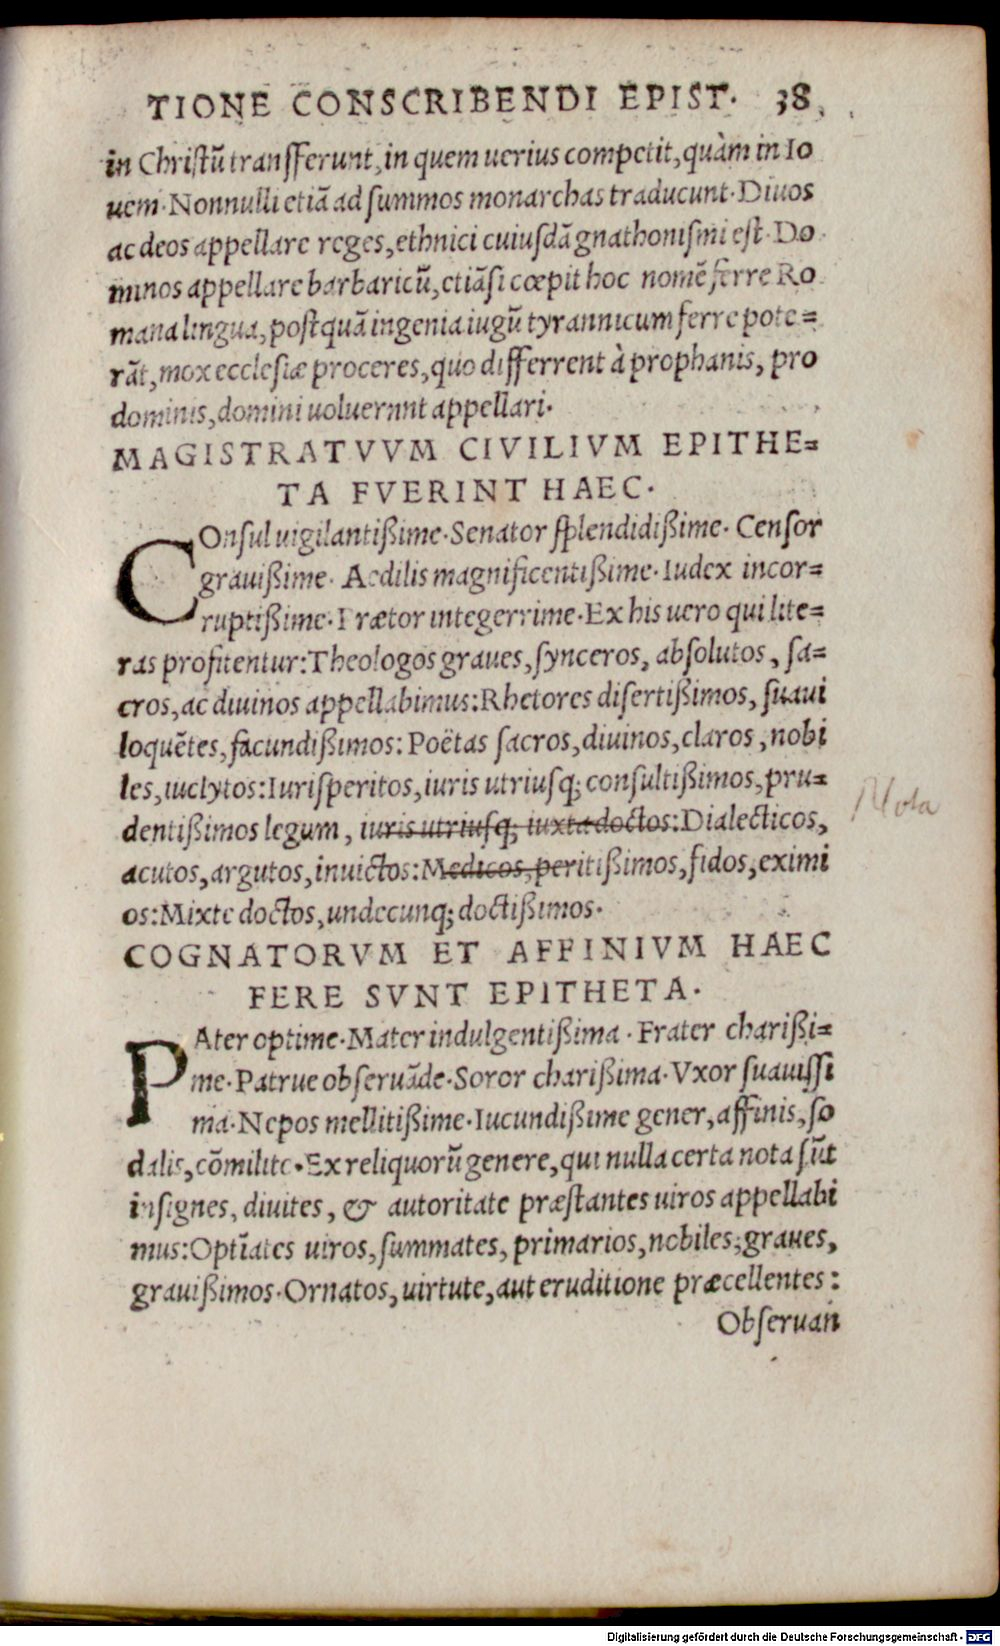 TIONE CONSCRIBENDI EPIST. 38
in Christũ transferunt, in quem uerius competit, quàm in Io
uem. Nonnulli etiã ad summos monarchas traducunt. Diuos
ac deos appellare reges, ethnici cuiusdã gnathonismi est. Do
minos appellare barbaricũ, etiãsi cœpit hoc nomẽ ferre Ro
mana lingua, postquã ingenia iugũ tyrannicum ferre pote=
rãt, mox ecclesiæ proceres, quo differrent à prophanis, pro
dominis, domini uoluernnt appellari.
MAGISTRATVVM CIVILIVM EPITHE=
TA FVERINT HAEC.
COnsul uigilantißime. Senator splendidißime. Censor
grauißime. Aedilis magnificentißime. Iudex incor=
ruptißime. Prætor integerrime. Ex his uero qui lite=
ras profitentur: Theologos graues, synceros, absolutos, sa=
cros, ac diuinos appellabimus: Rhetores disertißimos, suaui
loquẽtes, facundißimos: Poëtas sacros, diuinos, claros, nobi
les, iuclytos: Iurisperitos, iuris utriusq; consultißimos, pru=
dentißimos legum, iuris utriusq; iuxta doctos: Dialecticos,
acutos, argutos, inuictos: Medicos, peritißimos, fidos, eximi
os: Mixte doctos, undecunq; doctißimos.
Nota
COGNATORVM ET AFFINIVM HAEC
FERE SVNT EPITHETA.
PAter optime. Mater indulgentißima. Frater charißi=
me. Patrue obseruãde. Soror charißima. Vxor suauissi
ma. Nepos mellitißime. Iucundißime gener, affinis, so
dalis, cõmilito. Ex reliquorũ genere, qui nulla certa nota sũt
insignes, diuites, & autoritate præstantes uiros appellabi
mus: Optĩates uiros, summates, primarios, nobiles, graues,
grauißimos. Ornatos, uirtute, aut eruditione præcellentes:
Obseruan
Digitalisierung gefördert durch die Deutsche Forschungsgemeinschaft - DFG